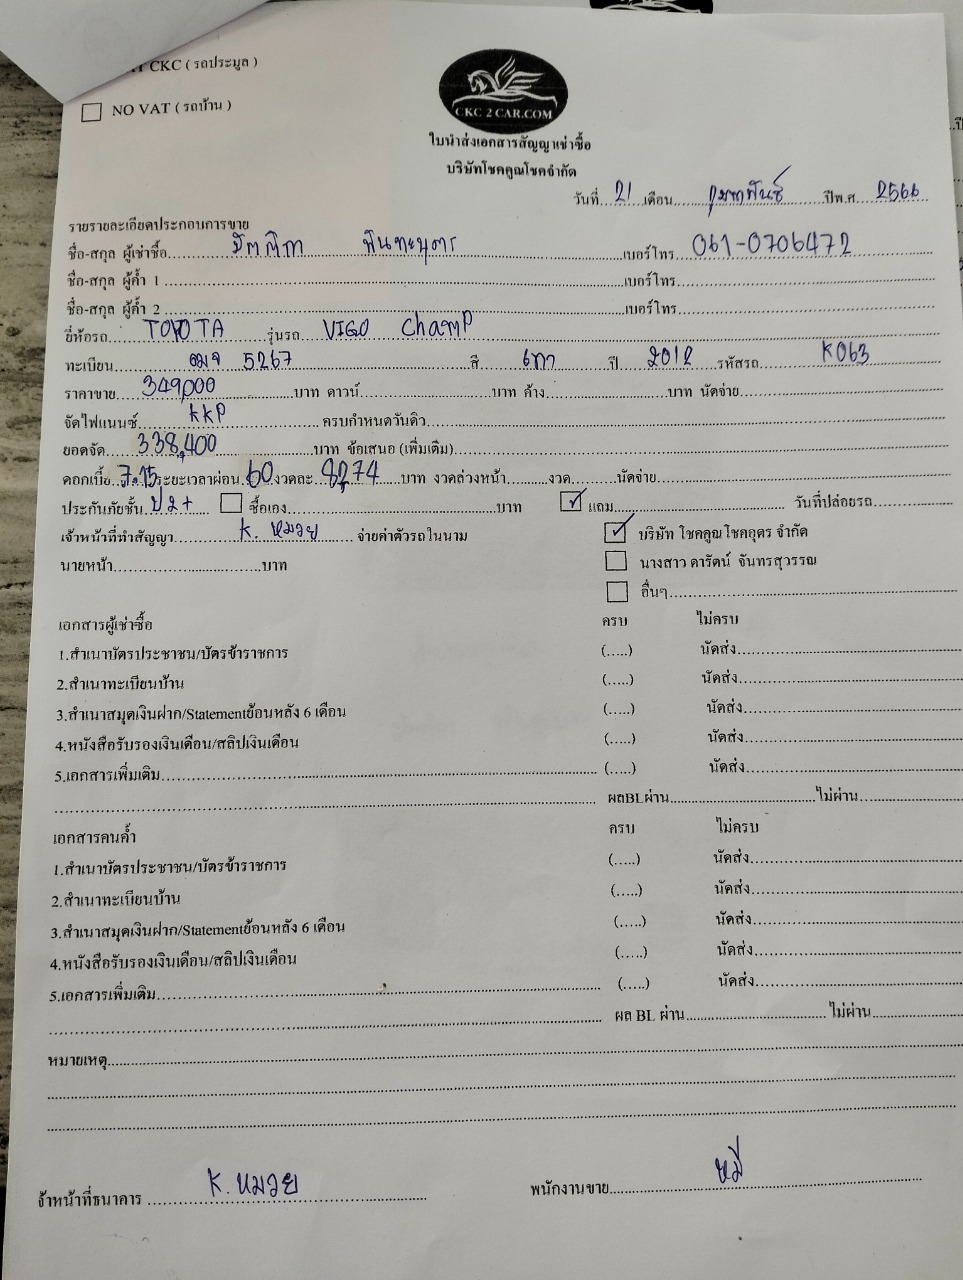 CKC ( รถประมูล )
NO VAT ( รถบ้าน )
CKC 2 CAR.COM
ใบนำส่งเอกสารสัญญาเช่าซื้อ
บริษัทโชคคูณโชคจำกัด
วันที่ 21 เดือน กุมภาพันธ์ ปีพ.ศ. 2566
รายรายละเอียดประกอบการขาย
ชื่อ-สกุล ผู้เช่าซื้อ เบอร์โทร 061-0706472
ชื่อ-สกุล ผู้ค้ำ 1 เบอร์โทร
ชื่อ-สกุล ผู้ค้ำ 2 เบอร์โทร
ยี่ห้อรถ TOYOTA รุ่นรถ VIGO ChamP
ทะเบียน 5267 สี เทา ปี 2012 รหัสรถ K063
ราคาขาย 349,000 บาท ดาวน์ บาท ค้าง บาท นัดจ่าย
จัดไฟแนนซ์ KKP ครบกำหนดวันดิว
ยอดจัด 338,400 บาท ข้อเสนอ (เพิ่มเติม)
ดอกเบี้ย 7.15 ระยะเวลาผ่อน 60 งวดละ 8,274 บาท งวดล่วงหน้า งวด นัดจ่าย
ประกันภัยชั้น ป2+ ซื้อเอง บาท แถม วันที่ปล่อยรถ
เจ้าหน้าที่ทำสัญญา K. หมวย จ่ายค่าตัวรถในนาม บริษัท โชคคูณโชคอุดร จำกัด
นายหน้า บาท นางสาว ดารัตน์ จันทรสุวรรณ
อื่นๆ
เอกสารผู้เช่าซื้อ ครบ ไม่ครบ
1.สำเนาบัตรประชาชน/บัตรข้าราชการ (.....) นัดส่ง
2.สำเนาทะเบียนบ้าน (.....) นัดส่ง
3.สำเนาสมุดเงินฝาก/Statementย้อนหลัง 6 เดือน (.....) นัดส่ง
4.หนังสือรับรองเงินเดือน/สลิปเงินเดือน (.....) นัดส่ง
5.เอกสารเพิ่มเติม (.....) นัดส่ง
ผลBLผ่าน ไม่ผ่าน
เอกสารคนค้ำ ครบ ไม่ครบ
1.สำเนาบัตรประชาชน/บัตรข้าราชการ (.....) นัดส่ง
2.สำเนาทะเบียนบ้าน (.....) นัดส่ง
3.สำเนาสมุดเงินฝาก/Statementย้อนหลัง 6 เดือน (.....) นัดส่ง
4.หนังสือรับรองเงินเดือน/สลิปเงินเดือน (.....) นัดส่ง
5.เอกสารเพิ่มเติม (.....) นัดส่ง
ผล BL ผ่าน ไม่ผ่าน
หมายเหตุ
จ้าหน้าที่ธนาคาร K. หมวย พนักงานขาย หมี